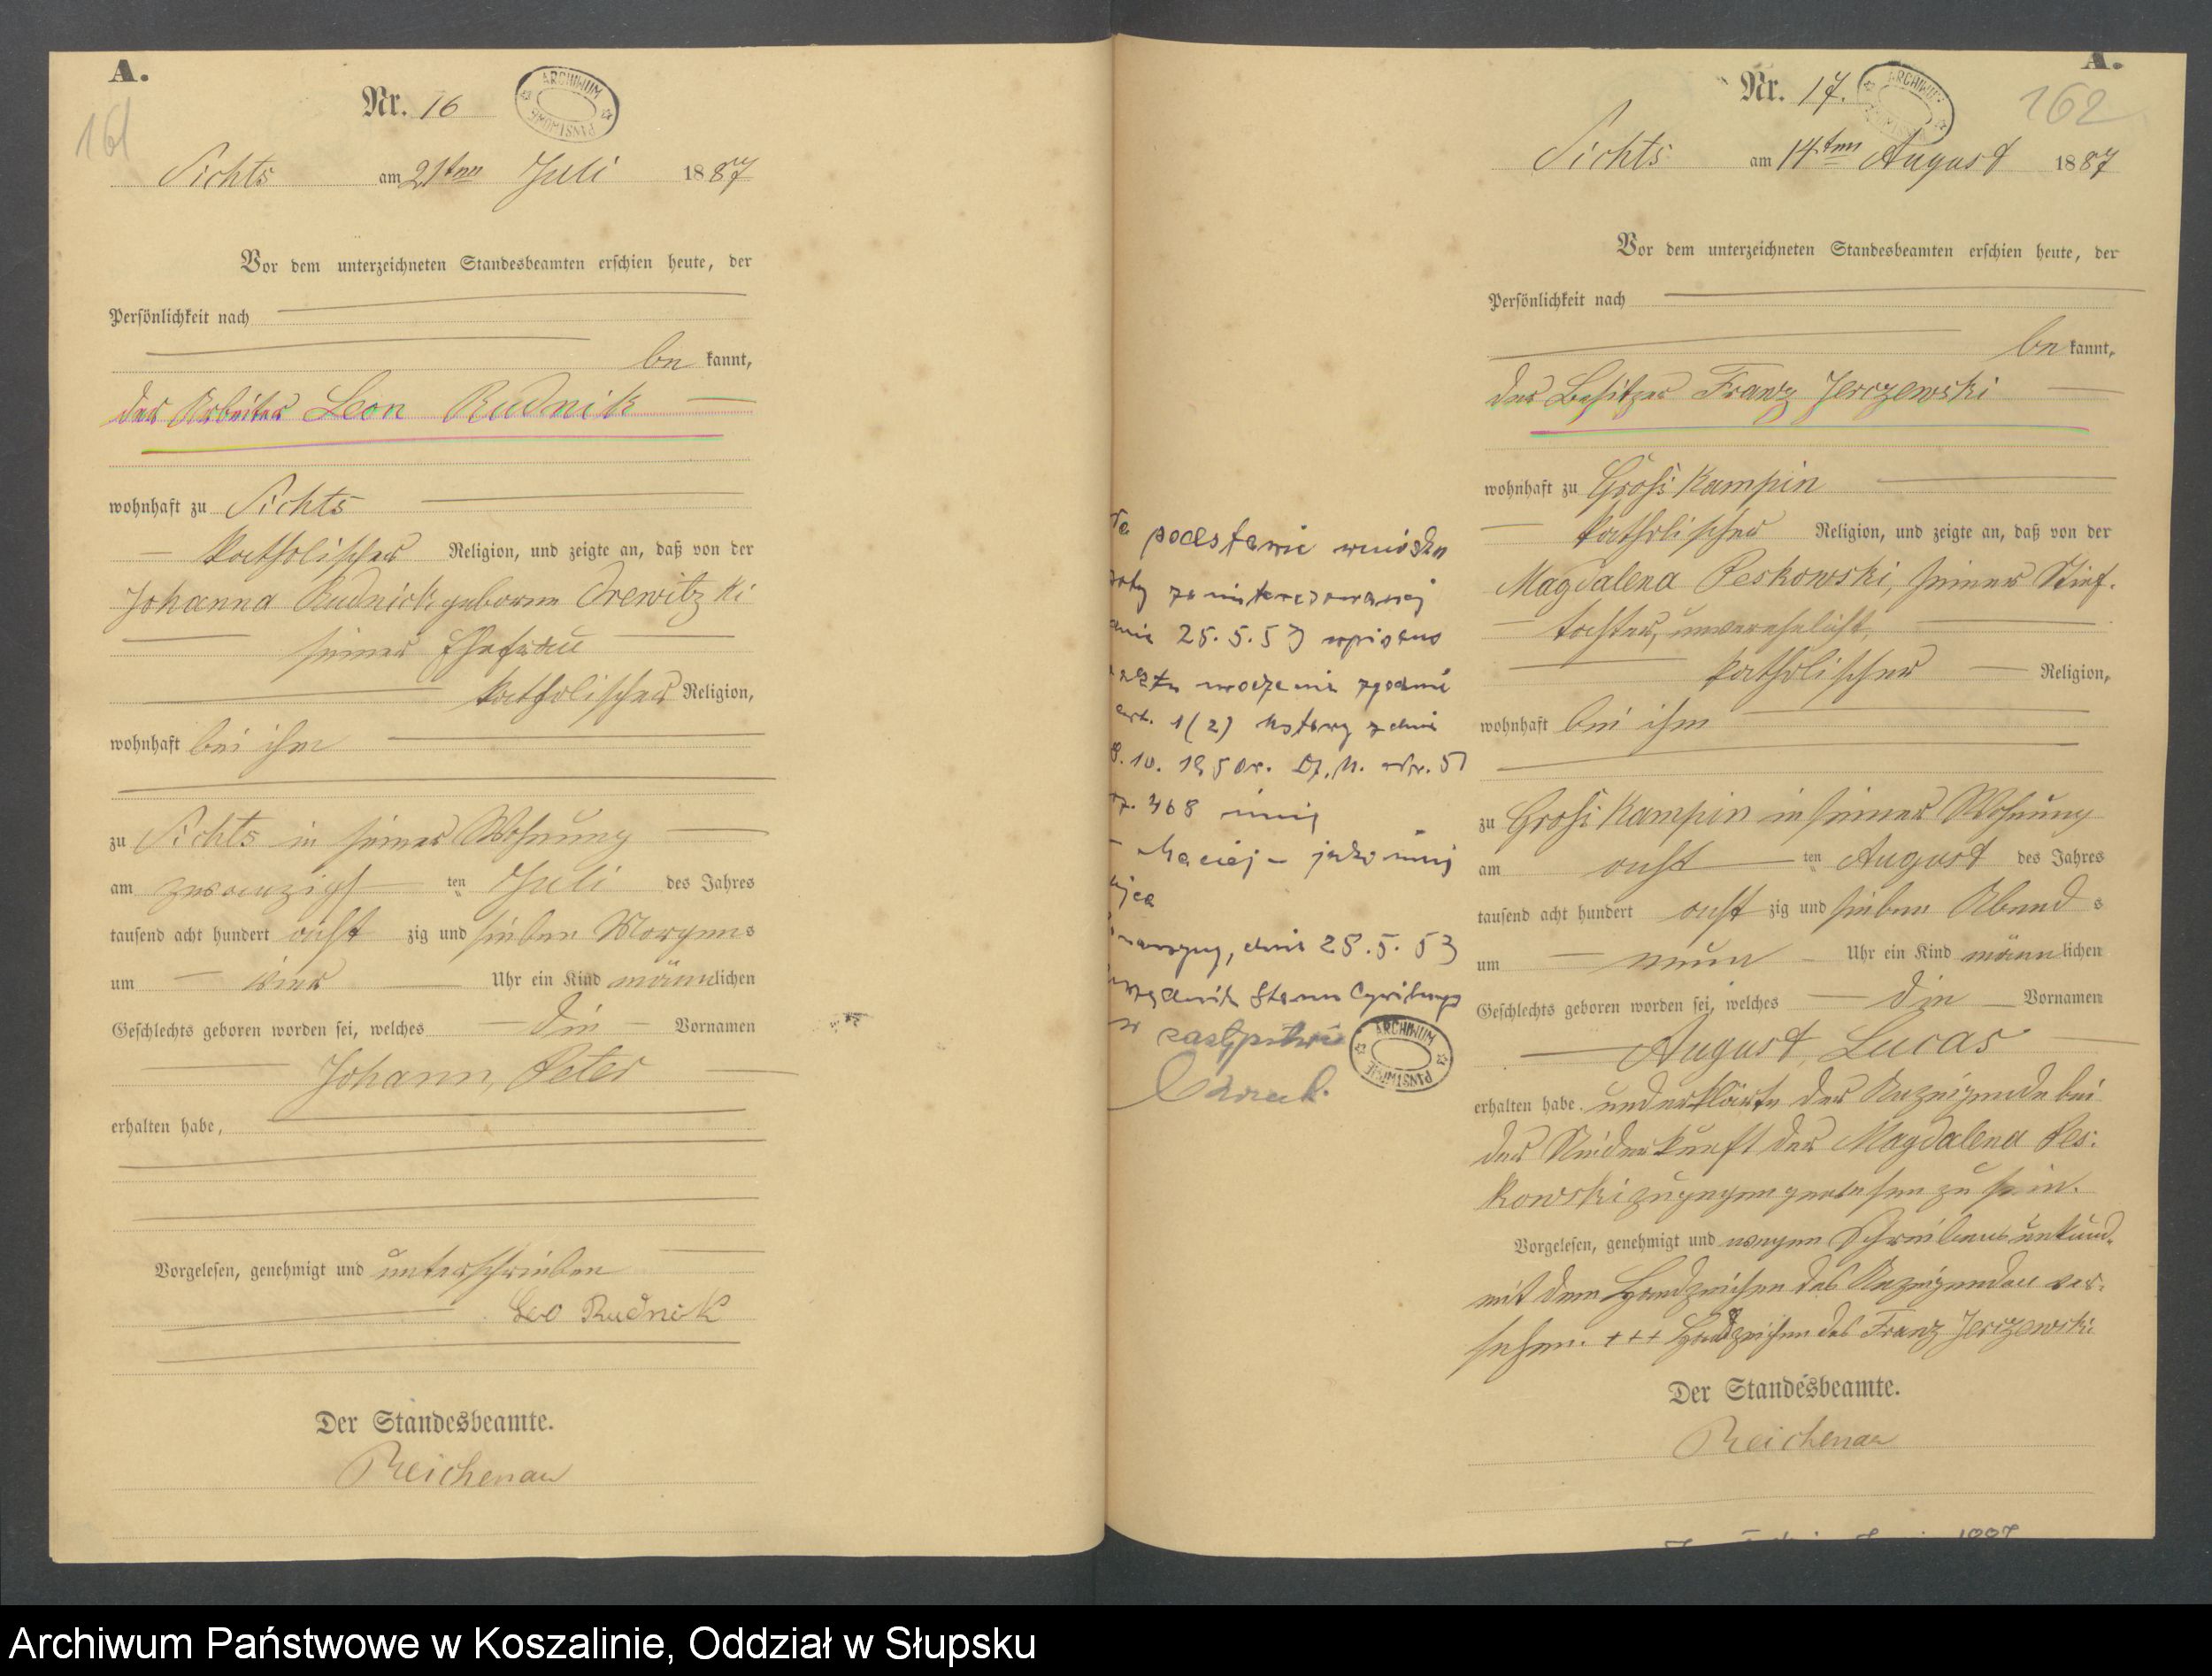 A.
161
Nr. 16
ARCHIWUM PAŃSTWOWE
Sichts am 21ten Juli 1887
Vor dem unterzeichneten Standesbeamten erschien heute, der
Persönlichkeit nach
be kannt,
der Arbeiter Leon Rudnik
wohnhaft zu Sichts
katholischer Religion, und zeigte an, daß von der
Johanna Rudnick geborene Drewitzki
seiner Ehefrau
katholischer Religion,
wohnhaft bei ihm
zu Sichts in seiner Wohnung
am zwanzigsten Juli des Jahres
tausend acht hundert acht zig und sieben Morgens
um vier Uhr ein Kind männlichen
Geschlechts geboren worden sei, welches die Vornamen
Johann, Peter
erhalten habe,
Vorgelesen, genehmigt und unterschrieben
Leo Rudnik
Der Standesbeamte.
Reichenau
podstawie wniosku
zainteresowanej
25.5.53 wpisano
urodzenia zgodnie
art. 1(2) ustawy z dnia
8.10. 1950r. Dz. U. Nr. 51
468 imię
Maciej – jako imię
ojca
dnia 28.5.53
Stanu Cywilnego
w zastępstwie
ARCHIWUM PAŃSTWOWE
A.
162
Nr. 17.
ARCHIWUM PAŃSTWOWE
Sichts am 14ten August 1887
Vor dem unterzeichneten Standesbeamten erschien heute, der
Persönlichkeit nach
be kannt,
der Besitzer Franz Jerczewski
wohnhaft zu Groß Kampin
katholischer Religion, und zeigte an, daß von der
Magdalena Peskowski, seiner Stief-
tochter, unverehelicht,
katholischer Religion,
wohnhaft bei ihm
zu Groß Kampin in seiner Wohnung
am acht ten August des Jahres
tausend acht hundert acht zig und sieben Abend s
um neun Uhr ein Kind männlichen
Geschlechts geboren worden sei, welches die Vornamen
August, Lucas
erhalten habe. und erklärte der Anzeigende bei
der Niederkunft der Magdalena Pes-
kowski zugegen gewesen zu sein.
Vorgelesen, genehmigt und wegen Schreibensunkund-
mit dem Handzeichen des Anzeigenden ver-
sehen. +++ Handzeichen des Franz Jerczewski
Der Standesbeamte.
Reichenau
Archiwum Państwowe w Koszalinie, Oddział w Słupsku